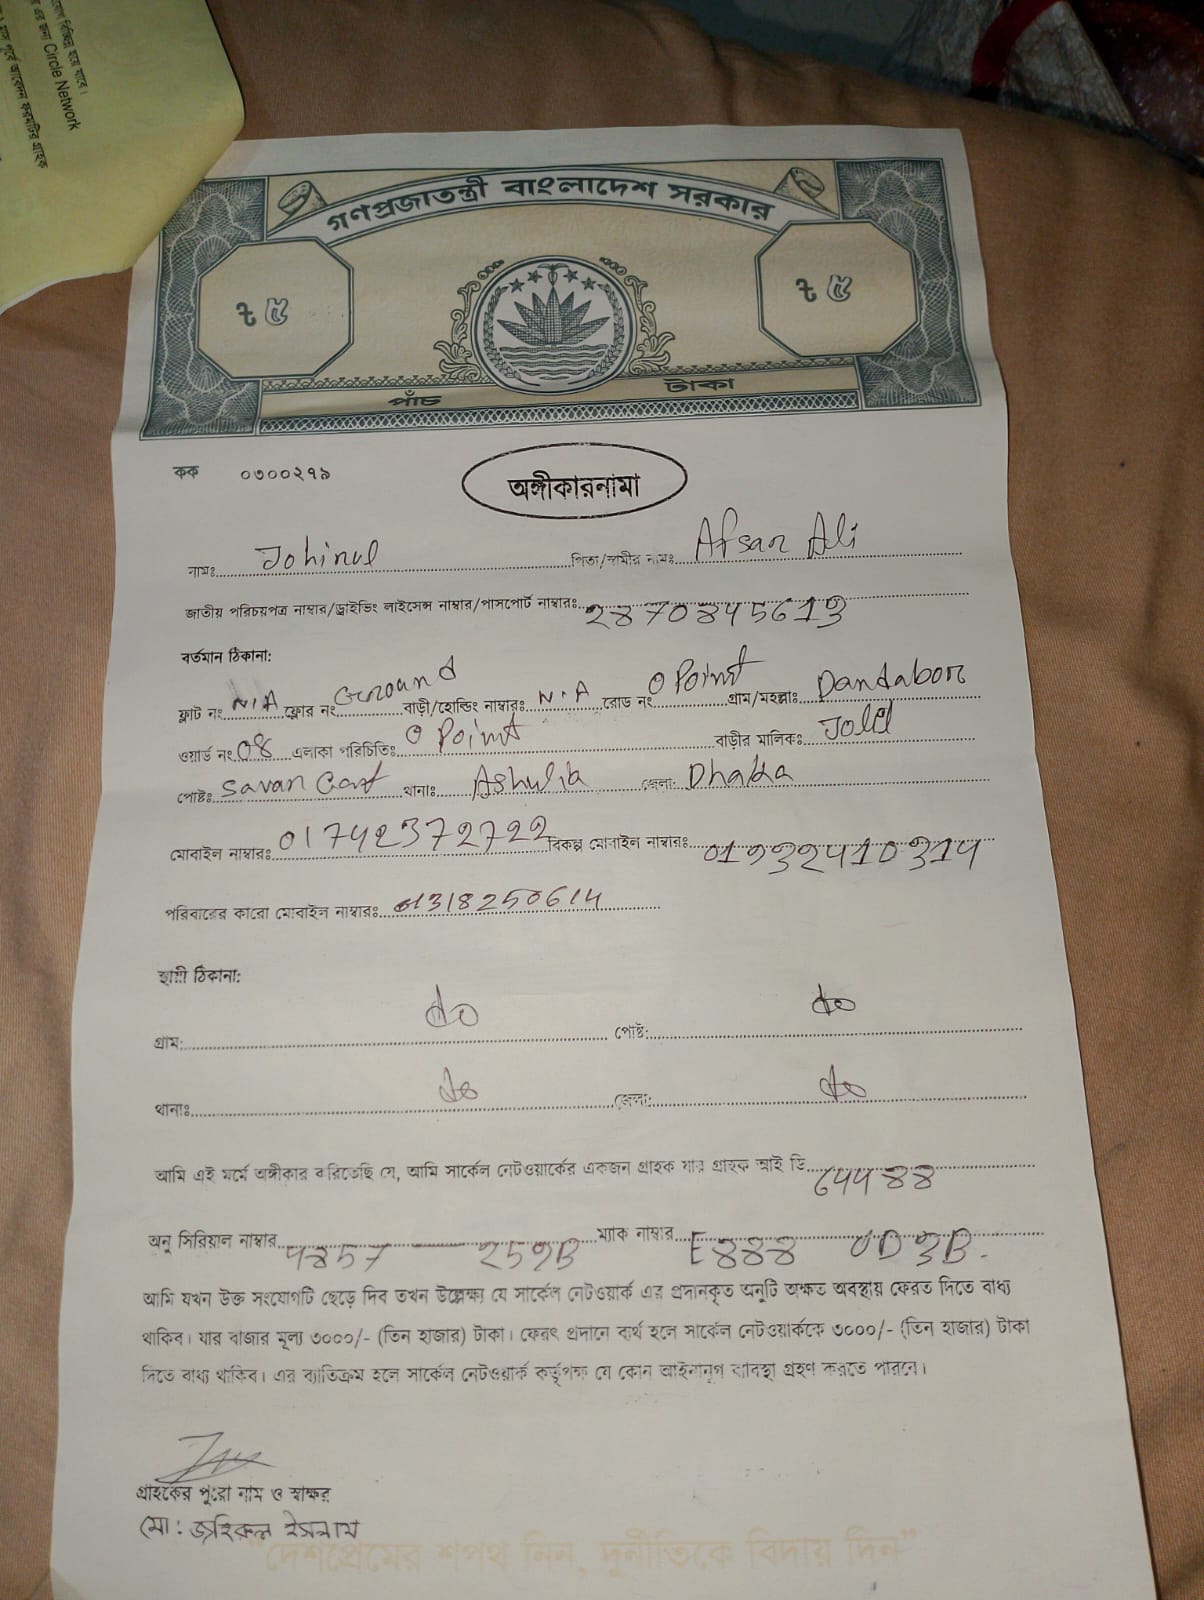 বিচ্ছিন্ন হয়ে যাবে।
এর জন্য Circle Network
মাস পূর্বে আবেদন ফরমটির গ্রাহক
গণপ্রজাতন্ত্রী বাংলাদেশ সরকার
৳ ৫
৳ ৫
পাঁচ টাকা
কক ০৩০০২৭৯
অঙ্গীকারনামা
নামঃ Johirul পিতা/স্বামীর নামঃ Afsar Ali
জাতীয় পরিচয়পত্র নাম্বার/ড্রাইভিং লাইসেন্স নাম্বার/পাসপোর্ট নাম্বারঃ 2870845613
বর্তমান ঠিকানা:
ফ্লাট নং N/A ফ্লোর নং Ground বাড়ী/হোল্ডিং নাম্বারঃ N/A রোড নং 0 Point গ্রাম/মহল্লাঃ Dandabor
ওয়ার্ড নং 08 এলাকা পরিচিতিঃ 0 Point বাড়ীর মালিকঃ
পোষ্টঃ Savar Cant থানাঃ Ashulia জেলা: Dhaka
মোবাইল নাম্বারঃ 01742372722 বিকল্প মোবাইল নাম্বারঃ 01932410314
পরিবারের কারো মোবাইল নাম্বারঃ 01318250614
স্থায়ী ঠিকানা:
গ্রাম: do পোষ্ট: do
থানাঃ do জেলা: do
আমি এই মর্মে অঙ্গীকার করিতেছি যে, আমি সার্কেল নেটওয়ার্কের একজন গ্রাহক যার গ্রাহক আই ডি 64488
অনু সিরিয়াল নাম্বার 4857 — 259B ম্যাক নাম্বার E888 0D3B.
আমি যখন উক্ত সংযোগটি ছেড়ে দিব তখন উল্লেক্ষ্য যে সার্কেল নেটওয়ার্ক এর প্রদানকৃত অনুটি অক্ষত অবস্থায় ফেরত দিতে বাধ্য
থাকিব। যার বাজার মূল্য ৩০০০/- (তিন হাজার) টাকা। ফেরৎ প্রদানে ব্যর্থ হলে সার্কেল নেটওয়ার্ককে ৩০০০/- (তিন হাজার) টাকা
দিতে বাধ্য থাকিব। এর ব্যতিক্রম হলে সার্কেল নেটওয়ার্ক কর্তৃপক্ষ যে কোন আইনানুগ ব্যবস্থা গ্রহণ করতে পারবে।
গ্রাহকের পুরো নাম ও স্বাক্ষর
মো: জহিরুল ইসলাম
“দেশপ্রেমের শপথ নিন, দুর্নীতিকে বিদায় দিন”